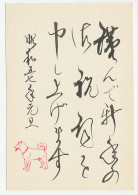 謹んで新年の
御祝詞を
申し上げます
昭和五七年元旦